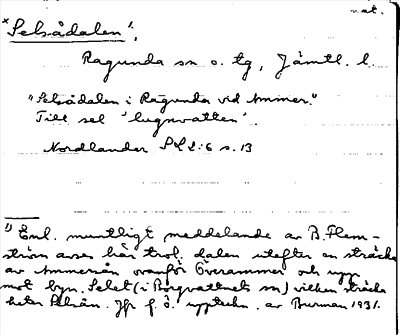 nat.
*Selsådalen¹,
Ragunda sn o. tg, Jämtl. l.
"Selsådalen i Ragunda vid Ammer."
Till sel 'lugnvatten'.
Nordlander s. 13
¹) Enl. muntligt meddelande av B. Flem-
ström avses här trol. dalen utefter en sträcka
av Ammerån ovanför Överammer och upp
mot byn Selet (i Borgvattnets sn) vilken sträcka
heter Selsån. Jfr f. ö. uppteckn. av Burman 1931.